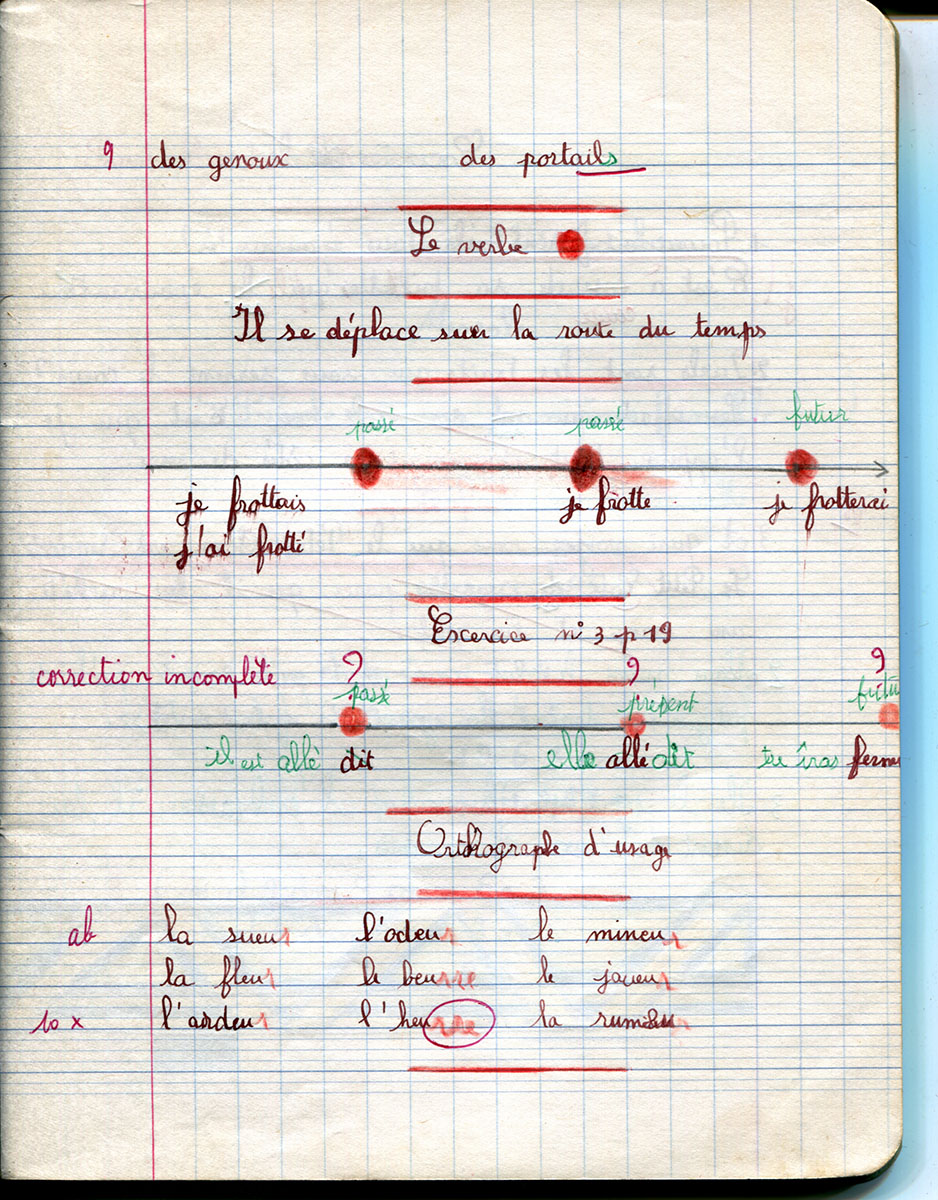 9 des genoux des portails
Le verbe
Il se déplace sur la route du temps
passé passé futur
je frottais je frotte je frotterai
j'ai frotté
Excercice n° 3 p 19
correction incomplète ? ? ?
passé présent futu
il est allé dit elle allé dit tu iras ferme
Orthographe d'usage
ab la sueur l'odeur le mineur
la fleur le beurre le joueur
10 x l'ardeur l'heurre la